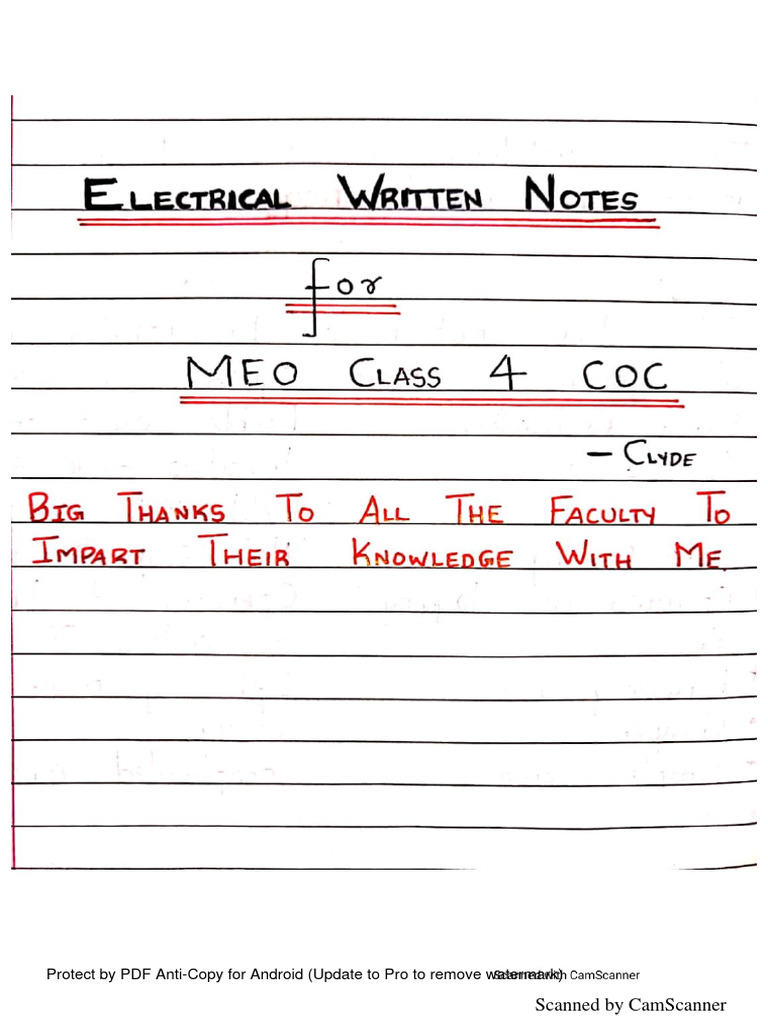 ELECTRICAL WRITTEN NOTES
for
MEO CLASS 4 COC
– CLYDE
BIG THANKS TO ALL THE FACULTY TO
IMPART THEIR KNOWLEDGE WITH ME
Protect by PDF Anti-Copy for Android (Update to Pro to remove watermark)
Scanned with CamScanner
Scanned by CamScanner